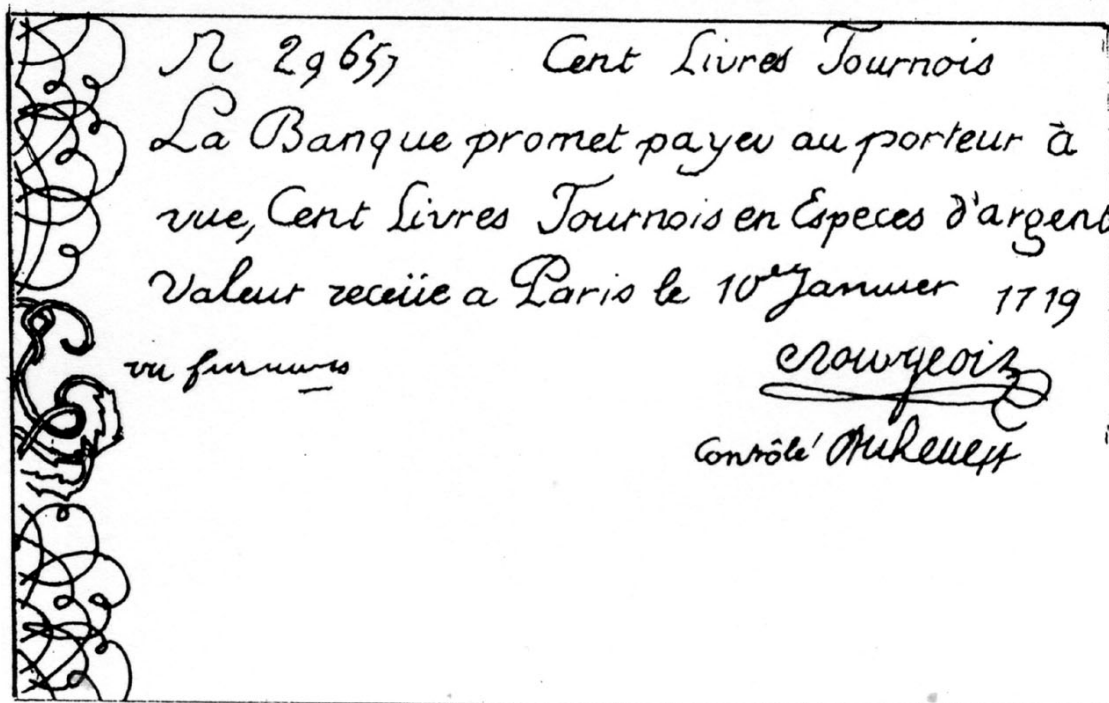 N 29657 Cent Livres Tournois
La Banque promet payer au porteur à
vue, Cent Livres Tournois en Especes d'argent
Valeur receüe a Paris le 10er Janvier 1719
vu
Bourgeois
Controlé